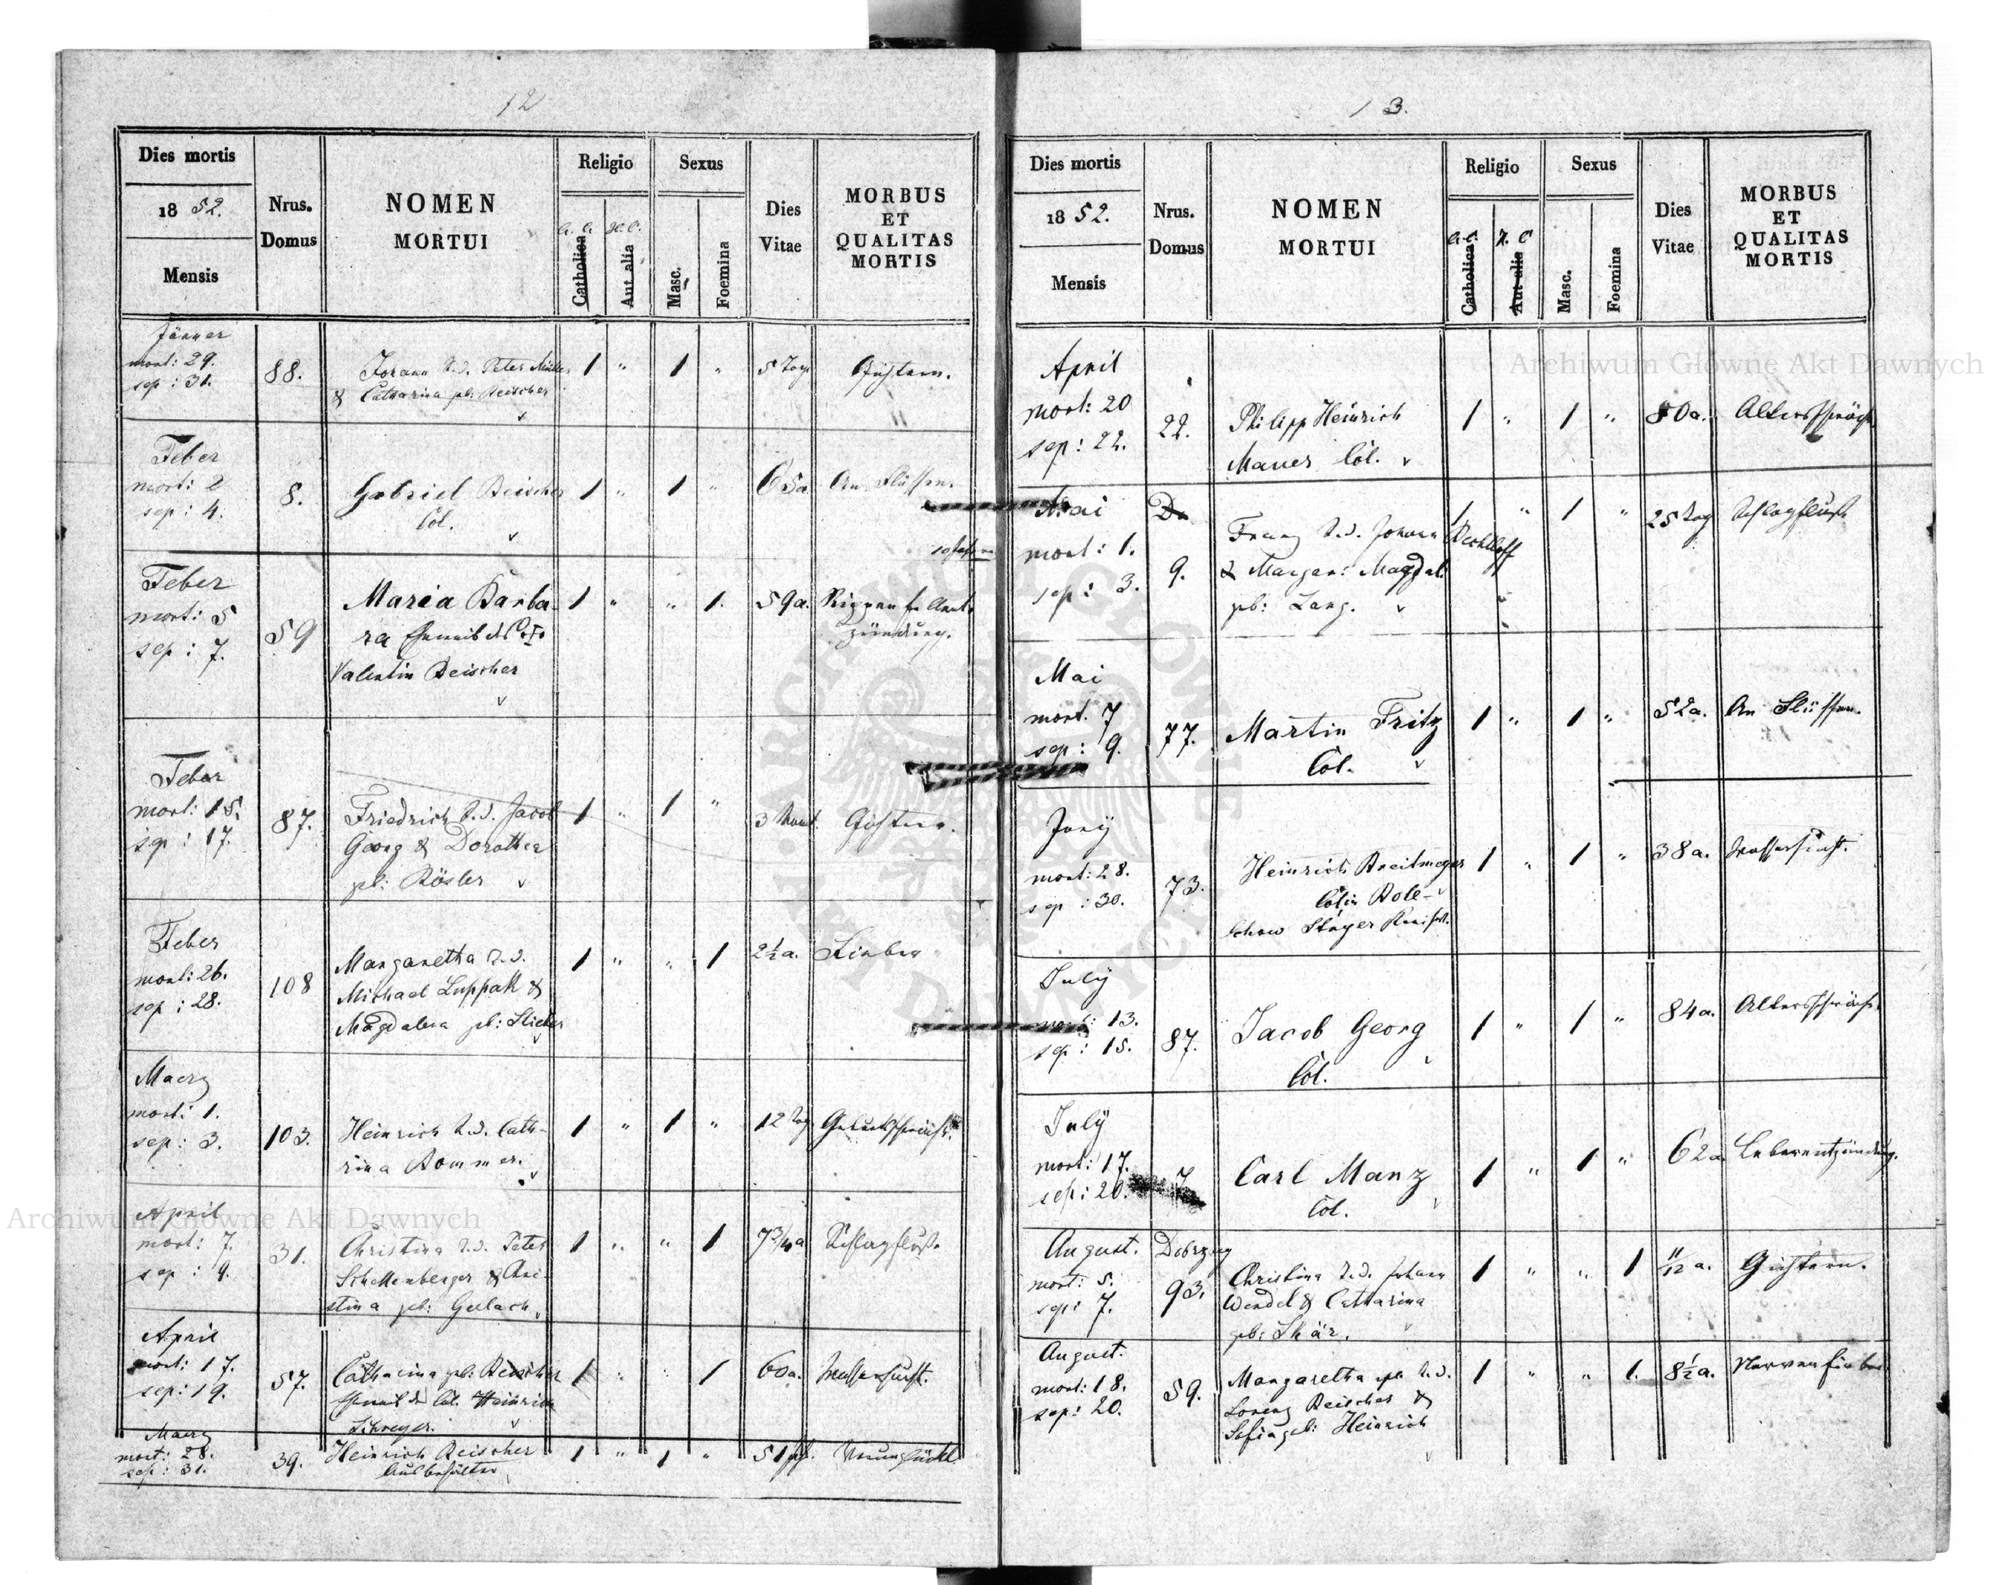 12
Dies mortis
1852.
Mensis
Nrus.
Domus
NOMEN
MORTUI
Religio
A. C.
H. C.
Catholica
Aut alia
Sexus
Masc.
Foemina
Dies
Vitae
MORBUS
ET
QUALITAS
MORTIS
Jänner
mort: 29.
sep: 31.
88.
Johann S. d. Peter Müller
& Catharina geb: Beischer
1 " 1 "
5 Tage
Gichtern.
Feber
mort: 2
sep: 4.
8.
Gabriel Beischer
Col.
1 " 1 "
65a
An Flüssen.
Feber
mort: 5
sep: 7.
59
Maria Barba-
ra Eheweib des
Valentin Beischer
1 " " 1.
59a.
Rippenfellent-
zündung.
Feber
mort: 15.
sep: 17.
87.
Friedrich S. d. Jacob
Georg & Dorothea
geb: Rösler
1 " 1 "
3 Monat
Gichtern.
Feber
mort: 26.
sep: 28.
108
Margaretha T. d.
Michael Luppak &
Magdalena geb: Stieber
1 " " 1
2½a.
Fieber
Maerz
mort: 1.
sep: 3.
103.
Heinrich S. d. Cath-
rina Rommer.
1 " 1 "
12 Tag
April
mort: 7.
sep: 9.
31.
Christina T. d. Peter
Schellenberger & Chri-
stina geb: Gerlach
1 " " 1
7¾a
Schlagfluß.
April
mort: 17.
sep: 19.
57.
Catharina geb: Beischer
Eheweib d. Col. Heinrich
Schreyer.
1 " " 1
60a.
Wassersucht.
Maerz
mort: 28.
sep: 31.
39.
Heinrich Beischer
1 " 1 "
51
13.
Dies mortis
1852.
Mensis
Nrus.
Domus
NOMEN
MORTUI
Religio
A. C.
H. C
Catholica
Aut alia
Sexus
Masc.
Foemina
Dies
Vitae
MORBUS
ET
QUALITAS
MORTIS
April
mort: 20
sep: 22.
22.
Philipp Heinrich
Mauer Col.
1 " 1 "
80a.
Altersschwäche
Mai
mort: 1.
sep: 3.
9.
Franz S. d. Johann Bechtloff
& Margar: Magdal:
geb: Lang.
1 " 1 "
25 Tag
Schlagfluß
Mai
mort. 7
sep: 9.
77.
Martin Fritz
Col.
1 " 1 "
52a.
An Flüssen.
Juny
mort: 28.
sep: 30.
73.
Heinrich Breitmeyer
Col in Bole-
chow Stryer Kreises.
1 " 1 "
38a.
Wassersucht.
July
mort: 13.
sep: 15.
87.
Jacob Georg
Col.
1 " 1 "
84a.
Altersschwäche
July
mort: 17.
sep: 20.
7
Carl Manz
Col.
1 " 1 "
62a
Leberentzündung.
August.
mort: 5.
sep: 7.
93.
Christina T. d. Johann
Wendel & Catharina
geb: Skär.
1 " " 1
11/12 a.
Gichtern.
August.
mort: 18.
sep: 20.
59.
Margaretha T. d.
Lorenz Beischer &
Sofia geb: Heinrich
1 " " 1.
8½a.
Nervenfieber
Archiwum Główne Akt Dawnych
Archiwum Główne Akt Dawnych
ARCHIWUM GŁÓWNE AKT DAWNYCH